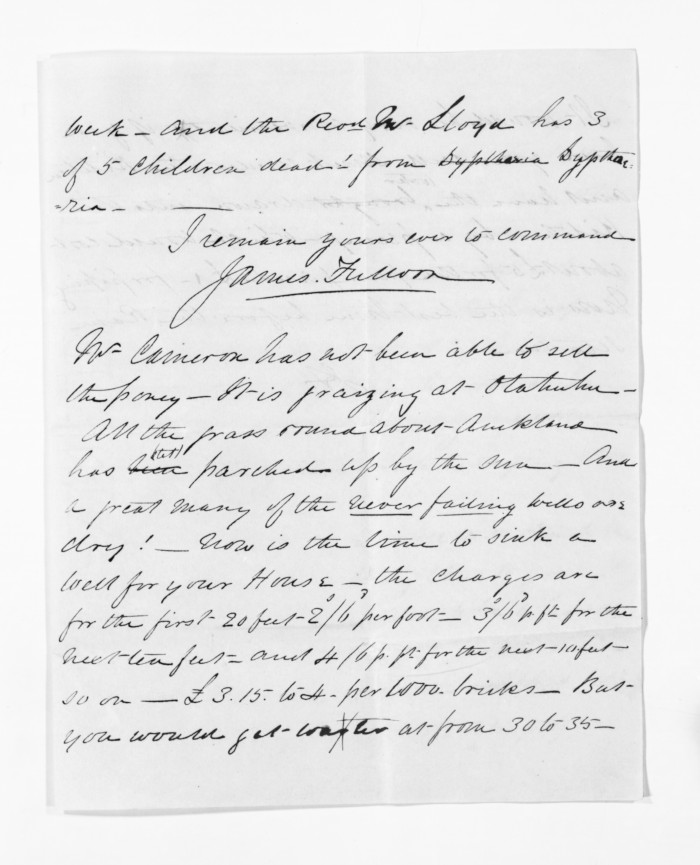 week - and the Revd Mr Lloyd has 3
of 5 children dead! from Dyptheria Dypthe=
=ria -
I remain yours ever to command
James. Fulloon
Mr Cameron has not been able to sell
the poney - It is graizing at Otahuhu -
All the grass round about Auckland
has been (tis) parched up by the sun - And
a great many of the never failing wells are
dry! - Now is the time to sink a
well for your House - the charges are
for the first 20 feet 2s/6d per foot - 3s/6d p. ft for the
next ten feet - and 4/6 p. ft. for the next 10 feet
so on - £3.15. to 4 - per 1000. bricks - But
you would get water at from 30 to 35 -